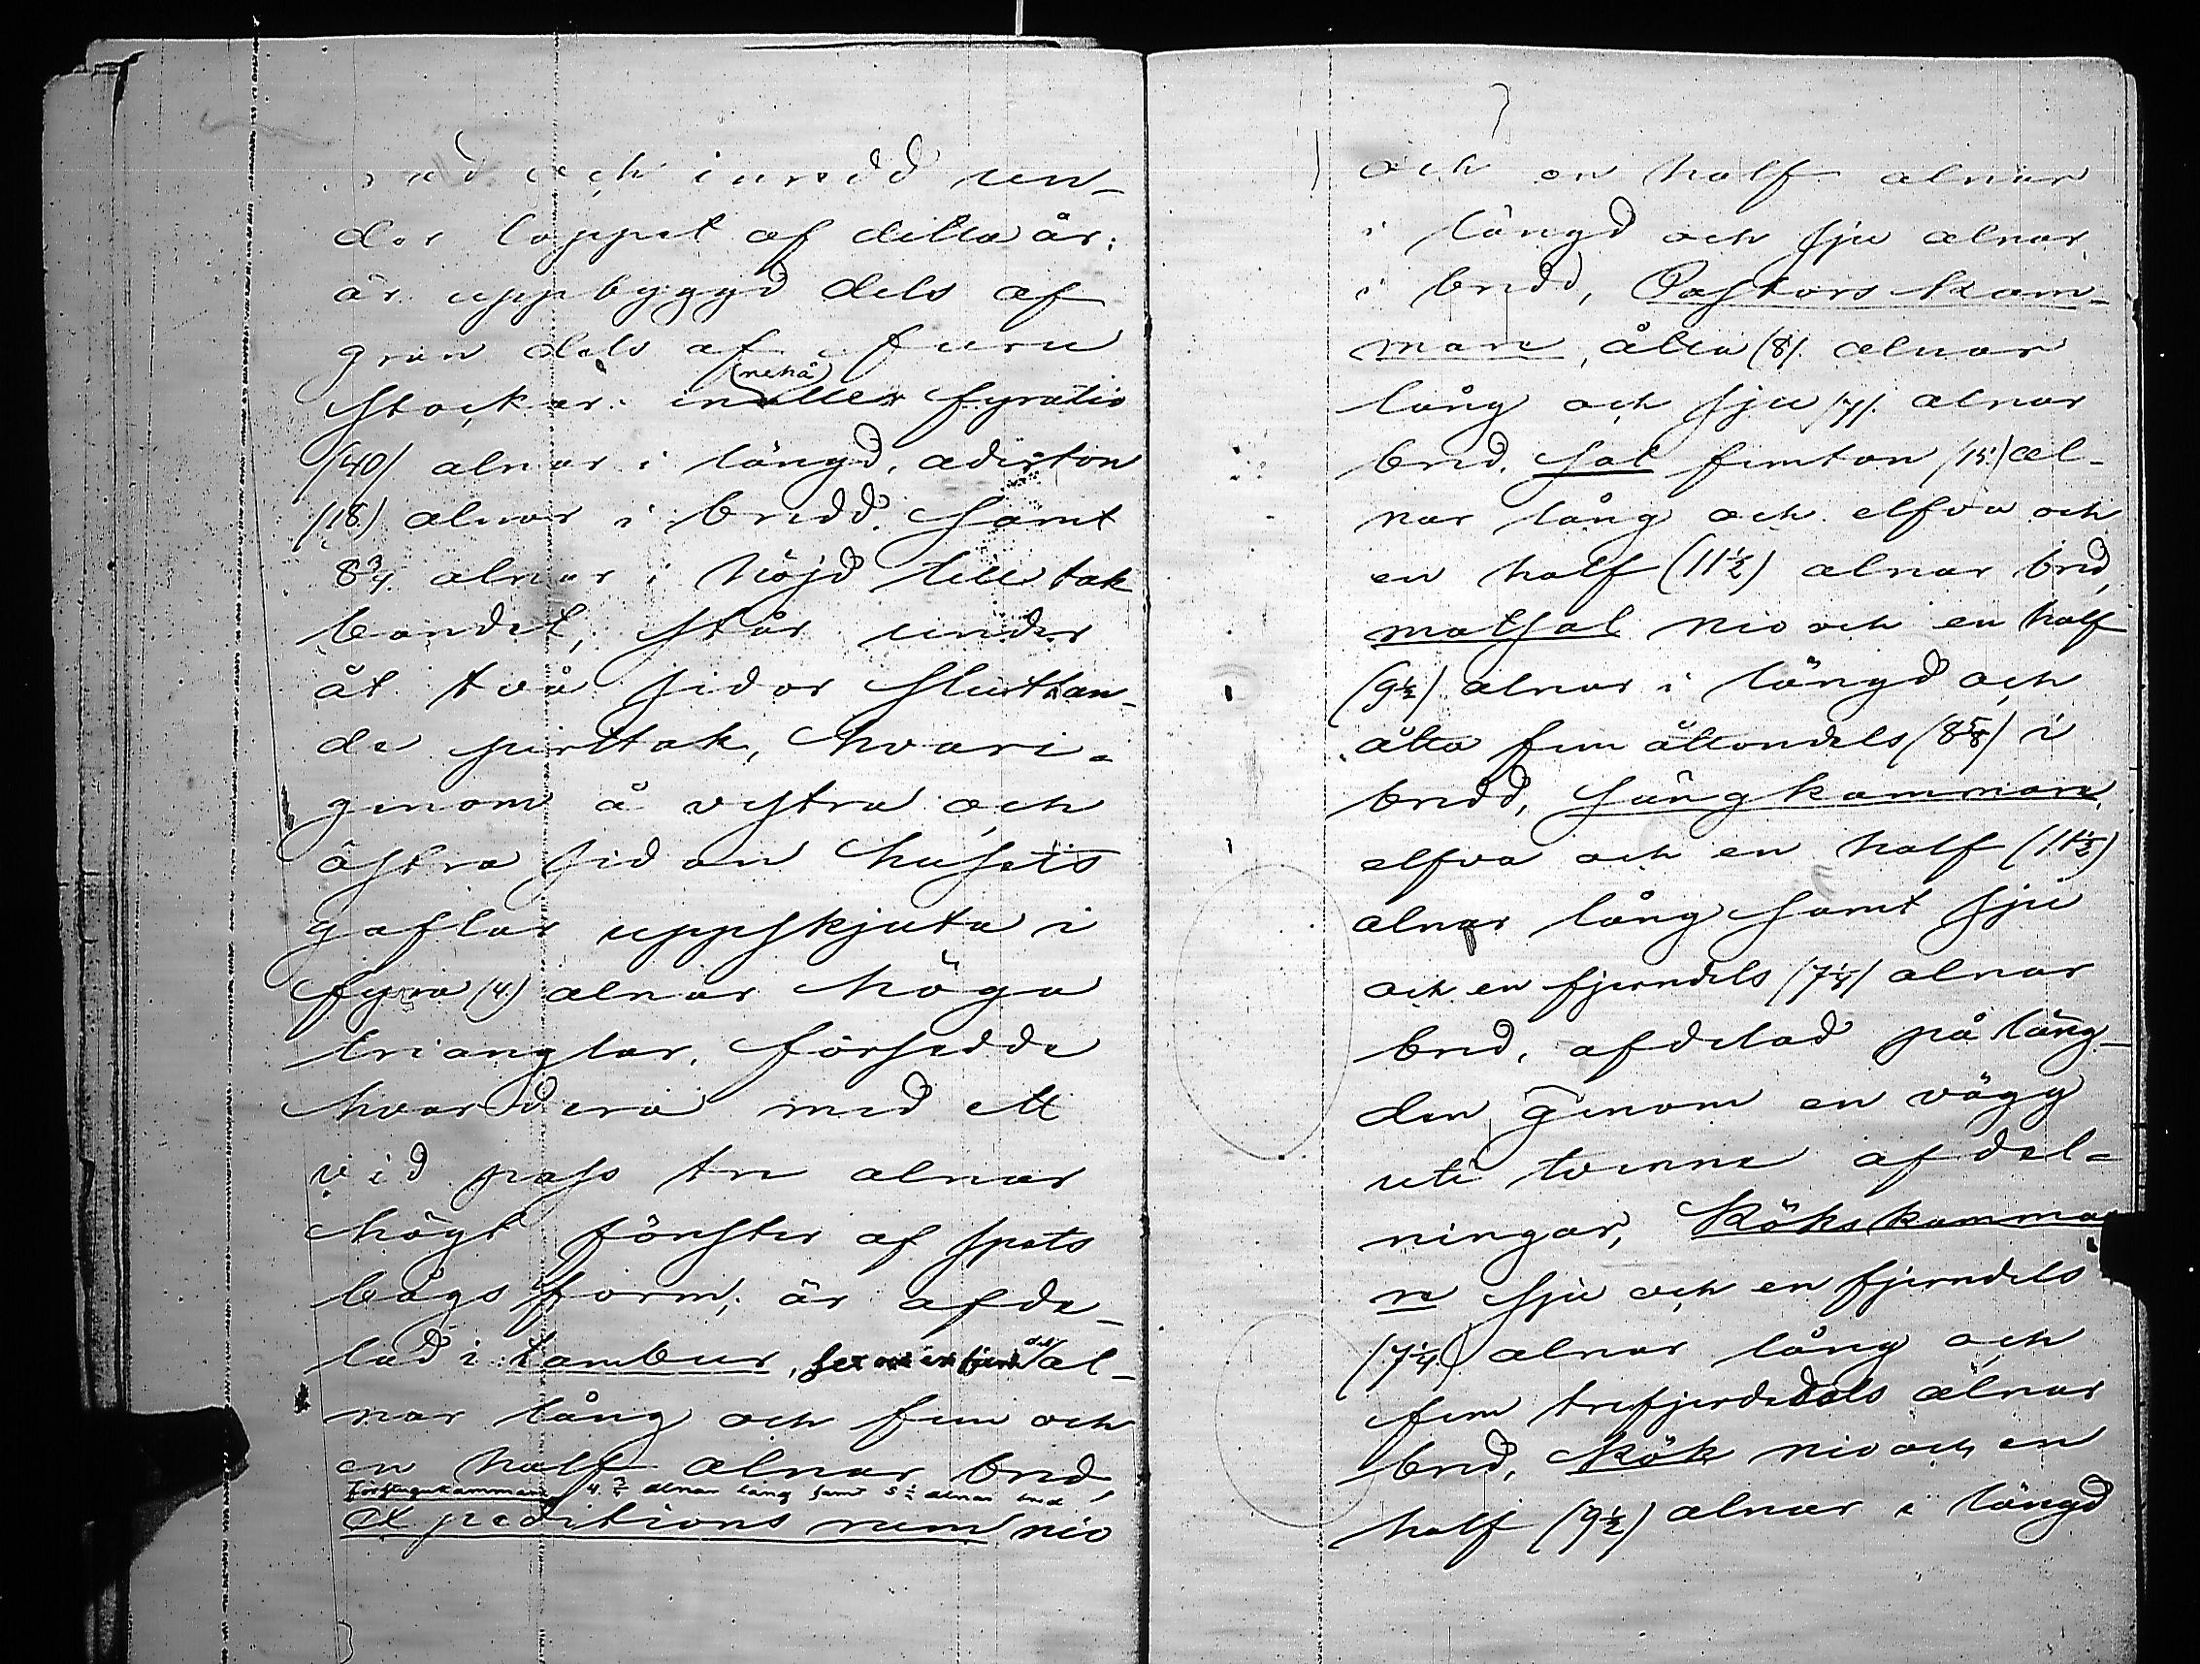 och inredd un-
der loppet af detta år:
är uppbyggd dels af
gran dels af furu
stockar: innehåller fyratio
(40) alnar i längd, aderton
(18) alnar i bredd. samt
8 3/4 alnar i höjd till tak
bandet, står under
åt två sidor sluttan-
de perttak, hvari-
genom å vestra och
östra sidan husets
gaflar uppskjuta i
fyra (4) alnar höga
trianglar, försedde
hvardera med ett
vid pass tre alnar
högt fönster af spets
bågs form; är afde-
lad i: tambur, sex och en fjerndels al-
nar lång och fem och
en half alnar bred,
Förstugukammare 4 3/4 alnar lång samt 5 1/2 alnar bred
Expeditions rum nio
och en half alnar
i längd och sju alnar
i bredd, Pastors kam-
mare, åtta (8). alnar
lång och sju (7). alnar
bred. Sal femton (15.) al-
nar lång och elfva och
en half (11 1/2) alnar bred,
matsal nio och en half
(9 1/2) alnar i längd och
åtta fem åttondels (8 5/8) i
bredd, sängkammare
elfva och en half (11 1/2)
alnar lång samt sju
och en fjerndels (7 1/4) alnar
bred, afdelad på läng-
den genom en vägg
uti tvenne afdel-
ningar, Kökskamma
re sju och en fjerndels
(7 1/4) alnar lång och
fem trefjerdedels alnar
bred, Kök nio och en
half (9 1/2) alnar i längd